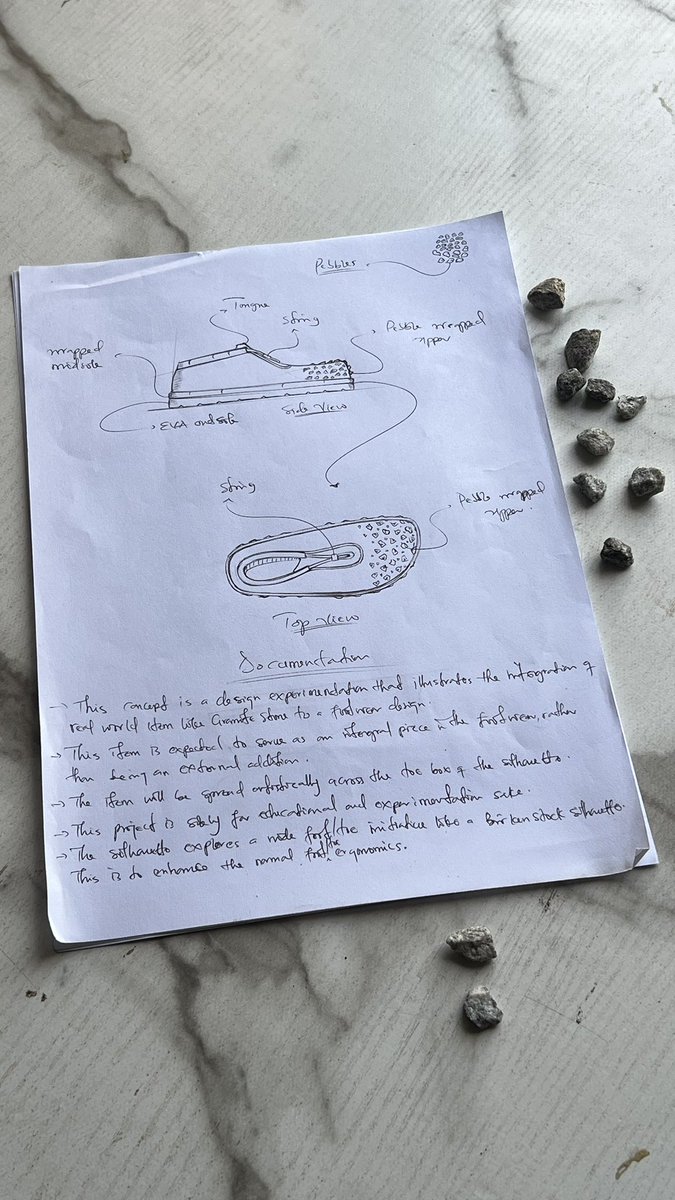 Pebbles
Tongue
String
Pebble wrapped upper
wrapped midsole
Side View
EVA outsole
String
Pebble wrapped upper.
Top View
Documentation
→ This concept is a design experimentation that illustrates the integration of
real world item like Granite stone to a footwear design.
→ This item is expected to serve as an integral piece in the footwear, rather
than being an external addition.
→ The item will be spread artistically across the toe box of the silhouette.
→ This project is solely for educational and experimentation sake.
→ The silhouette explores a wide foot/toe initiative like a Birkenstock silhouette.
This is to enhance the normal foot/toe ergonomics.